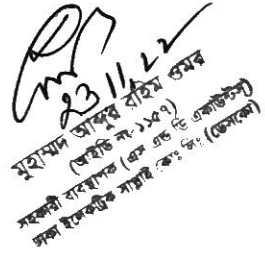 23/11/22
মুহাম্মদ আব্দুর রহিম ওমর
(আইডি নং-১১৫৭)
সহকারী ব্যবস্থাপক (এস এন্ড ডি একাউন্টস)
ঢাকা ইলেকট্রিক সাপ্লাই কোং লিঃ (ডেসকো)